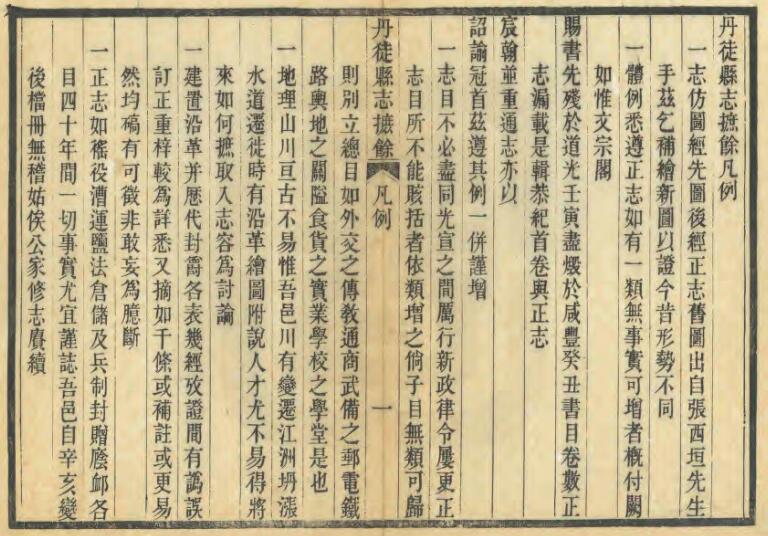 丹徒縣志摭餘凡例
一志仿圖經先圖後經正志舊圖出自張西垣先生
手茲乞補繪新圖以證今昔形勢不同
一體例悉遵正志如有一類無事實可增者概付闕
如惟文宗閣
賜書先殘於道光壬寅盡燬於咸豐癸丑書目卷數正
志漏載是輯恭紀首卷與正志
宸翰並重通志亦以
詔諭冠首茲遵其例一併謹增
一志目不必盡同光宣之間厲行新政律令屢更正
志目所不能賅括者依類增之倘子目無類可歸
丹徒縣志摭餘 凡例 一
則別立總目如外交之傳教通商武備之郵電鐵
路輿地之關隘食貨之實業學校之學堂是也
一地理山川亘古不易惟吾邑川有變遷江洲坍漲
水道遷徙時有沿革繪圖附說人才尤不易得將
來如何摭取入志容爲討論
一建置沿革并歷代封爵各表幾經攷證間有譌誤
訂正重梓較爲詳悉又摘如干條或補註或更易
然均碻有可徵非敢妄爲臆斷
一正志如徭役漕運鹽法倉儲及兵制封贈廕卹各
目四十年間一切事實尤宜謹誌吾邑自辛亥變
後檔冊無稽姑俟公家修志賡續